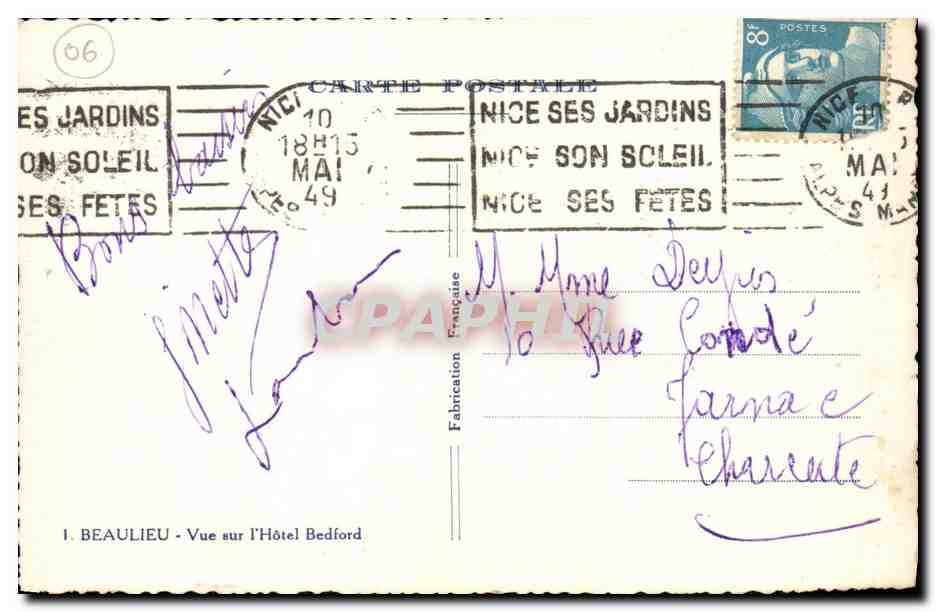 06
CARTE POSTALE
8F
POSTES
ES JARDINS
ON SOLEIL
SES FETES
NICE
10
18H15
MAI
49
NICE SES JARDINS
NICE SON SOLEIL
NICE SES FETES
NICE
10
MAI
49
ALPES MAR
Bons baisers
Ginette
M. Mme
10 Rue Condé
Jarnac
Charente
Fabrication Française
CPAPHIL
1. BEAULIEU - Vue sur l'Hôtel Bedford